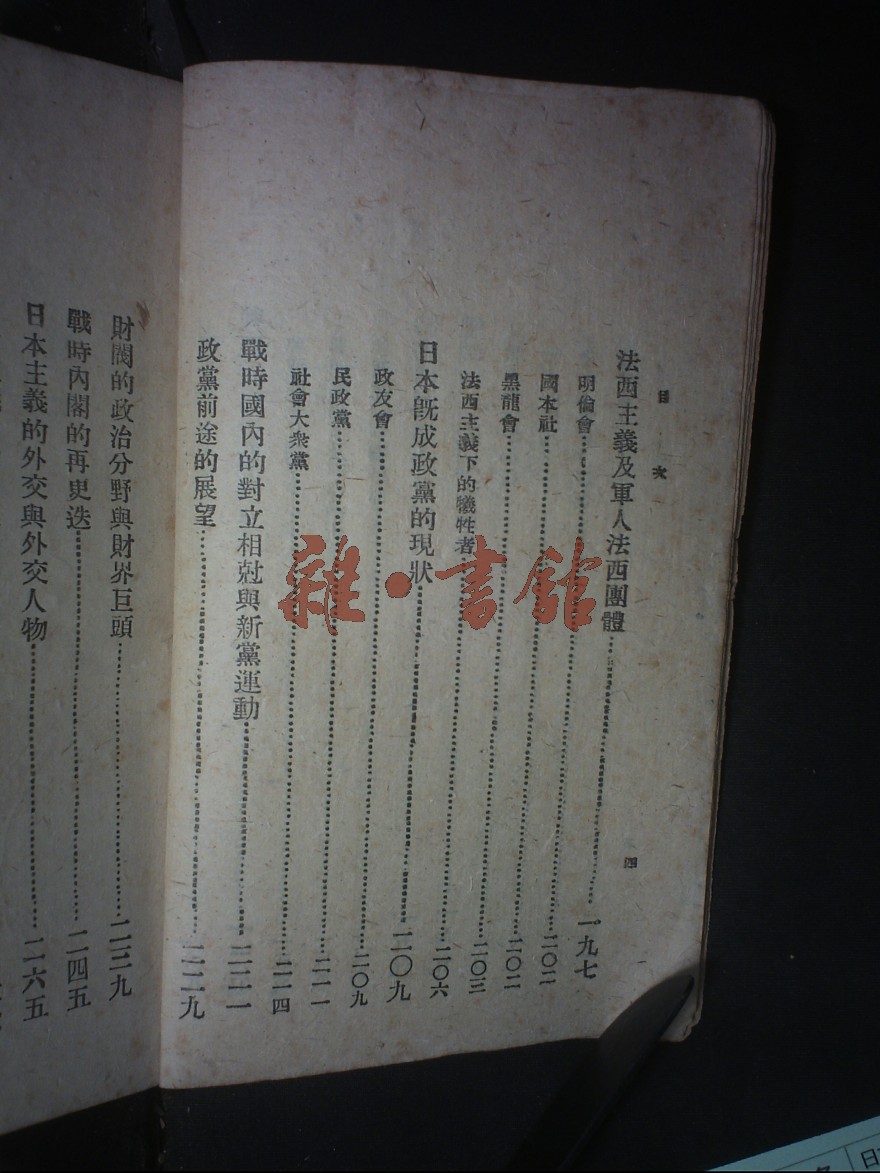 目次
四
法西主義及軍人法西團體……一九七
明倫會
國本社……二〇二
黑龍會……二〇二
法西主義下的犧牲者……二〇三
日本旣成政黨的現狀……二〇九
政友會……二〇九
民政黨……二一一
社會大衆黨……二一四
戰時國內的對立相尅與新黨運動……二二一
政黨前途的展望……二二九
財閥的政治分野與財界巨頭……二三九
戰時內閣的再更迭……二四五
日本主義的外交與外交人物……二六五
雜·書館